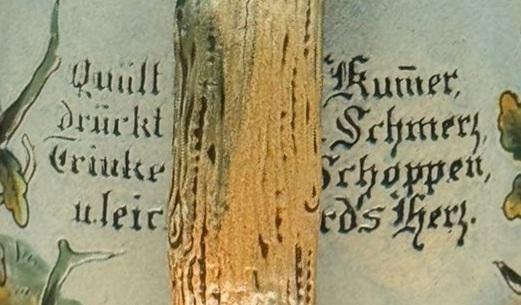 Quält Kum̄er,
drückt Schmerz,
Trinke Schoppen,
u. leic rd's Herz.